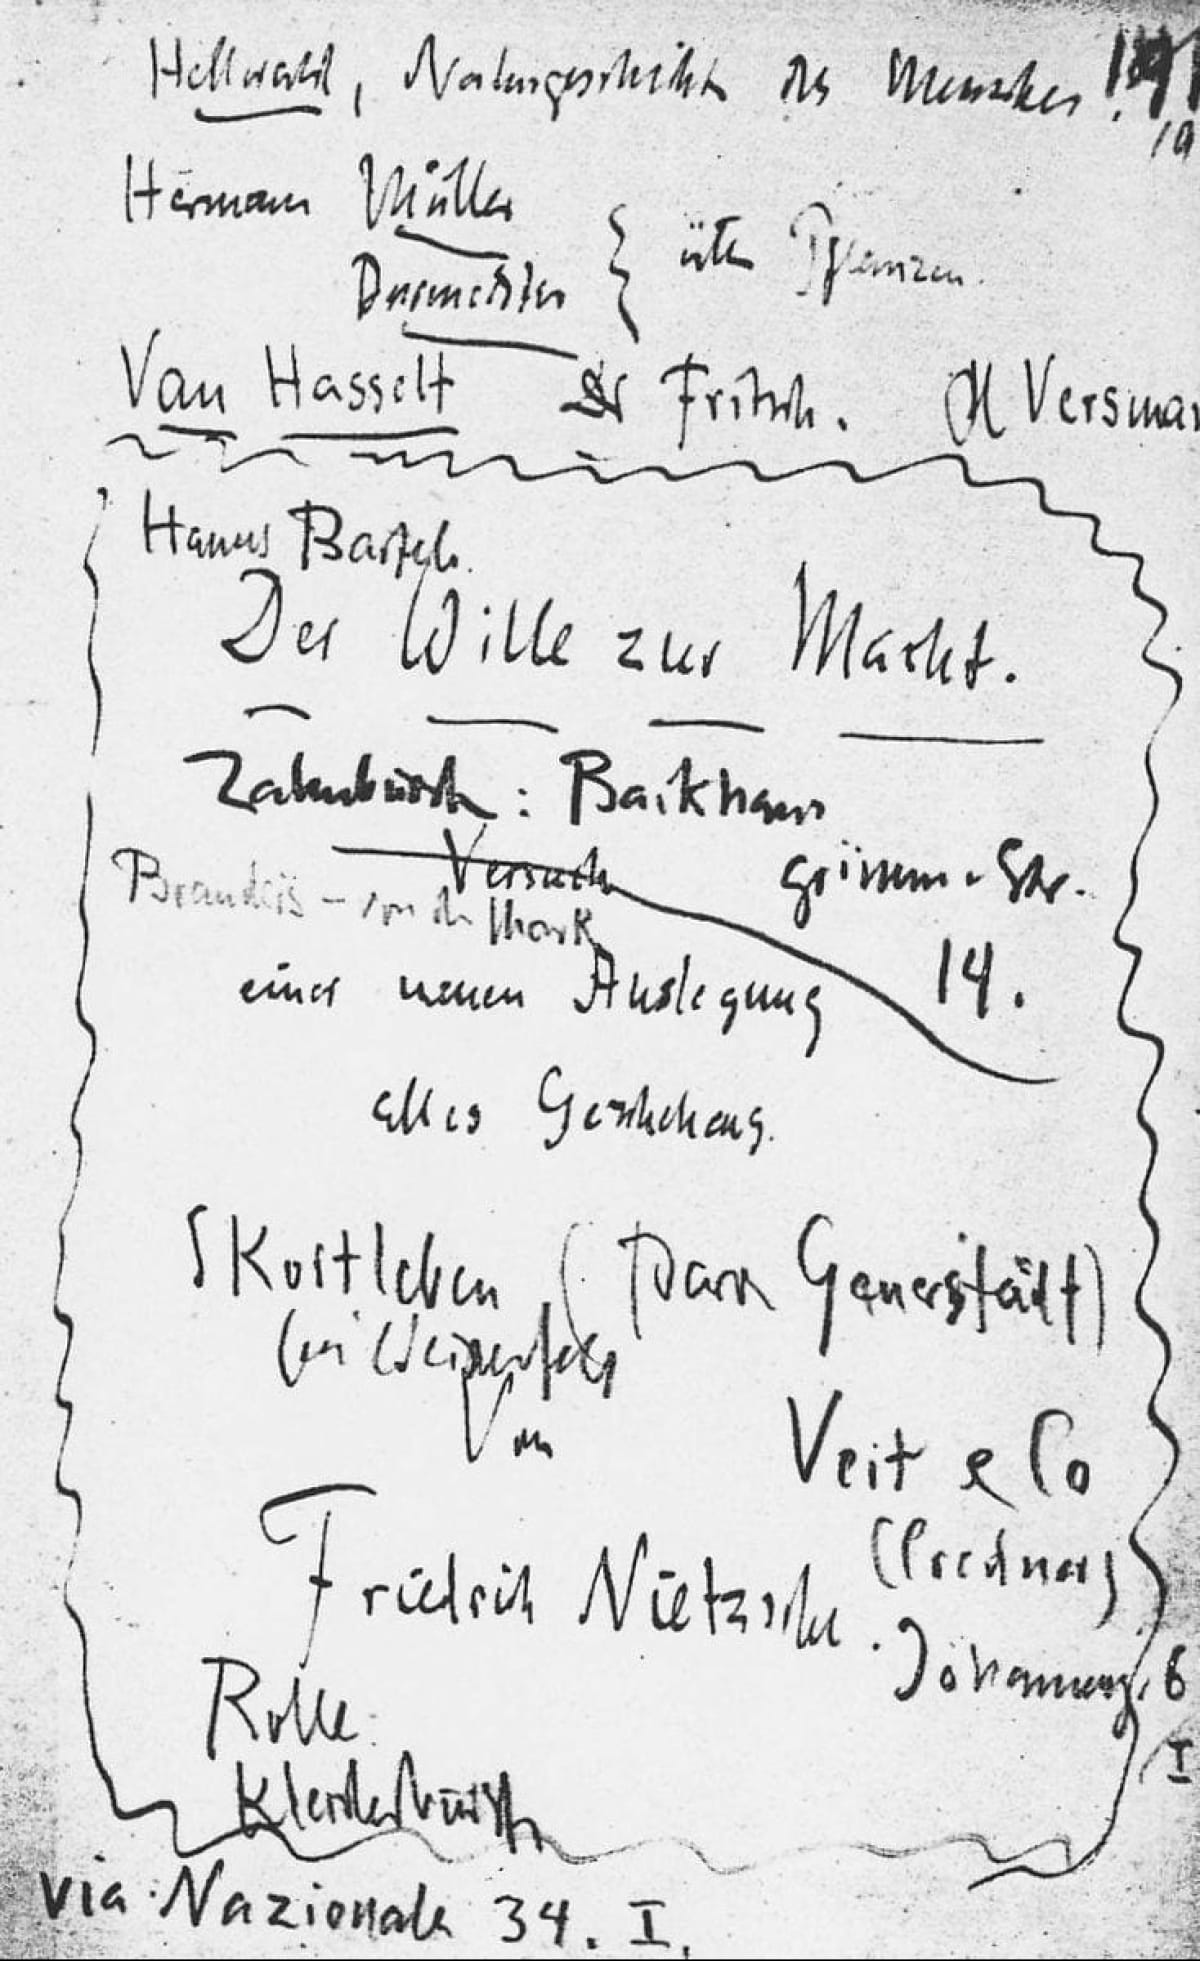 Hellwald, Naturgeschichte des Menschen.
Hermann Müller
über Pflanzen.
Van Hasselt Dr Fritsch. Versman
Hanns Bartels.
Der Wille zur Macht.
Zahnbürste: Backhaus
Versuch Grimm. Str.
Brandeis – von der Mark
14.
einer neuen Auslegung
alles Geschehens.
Kostleben (Pfarr Generstädt)
bei Weissenfels
Von
Veit & Co
(Credner)
Friedrich Nietzsche.
Johannesg. 6
I
Rolle
Kleiderbürste
via Nazionale 34. I.